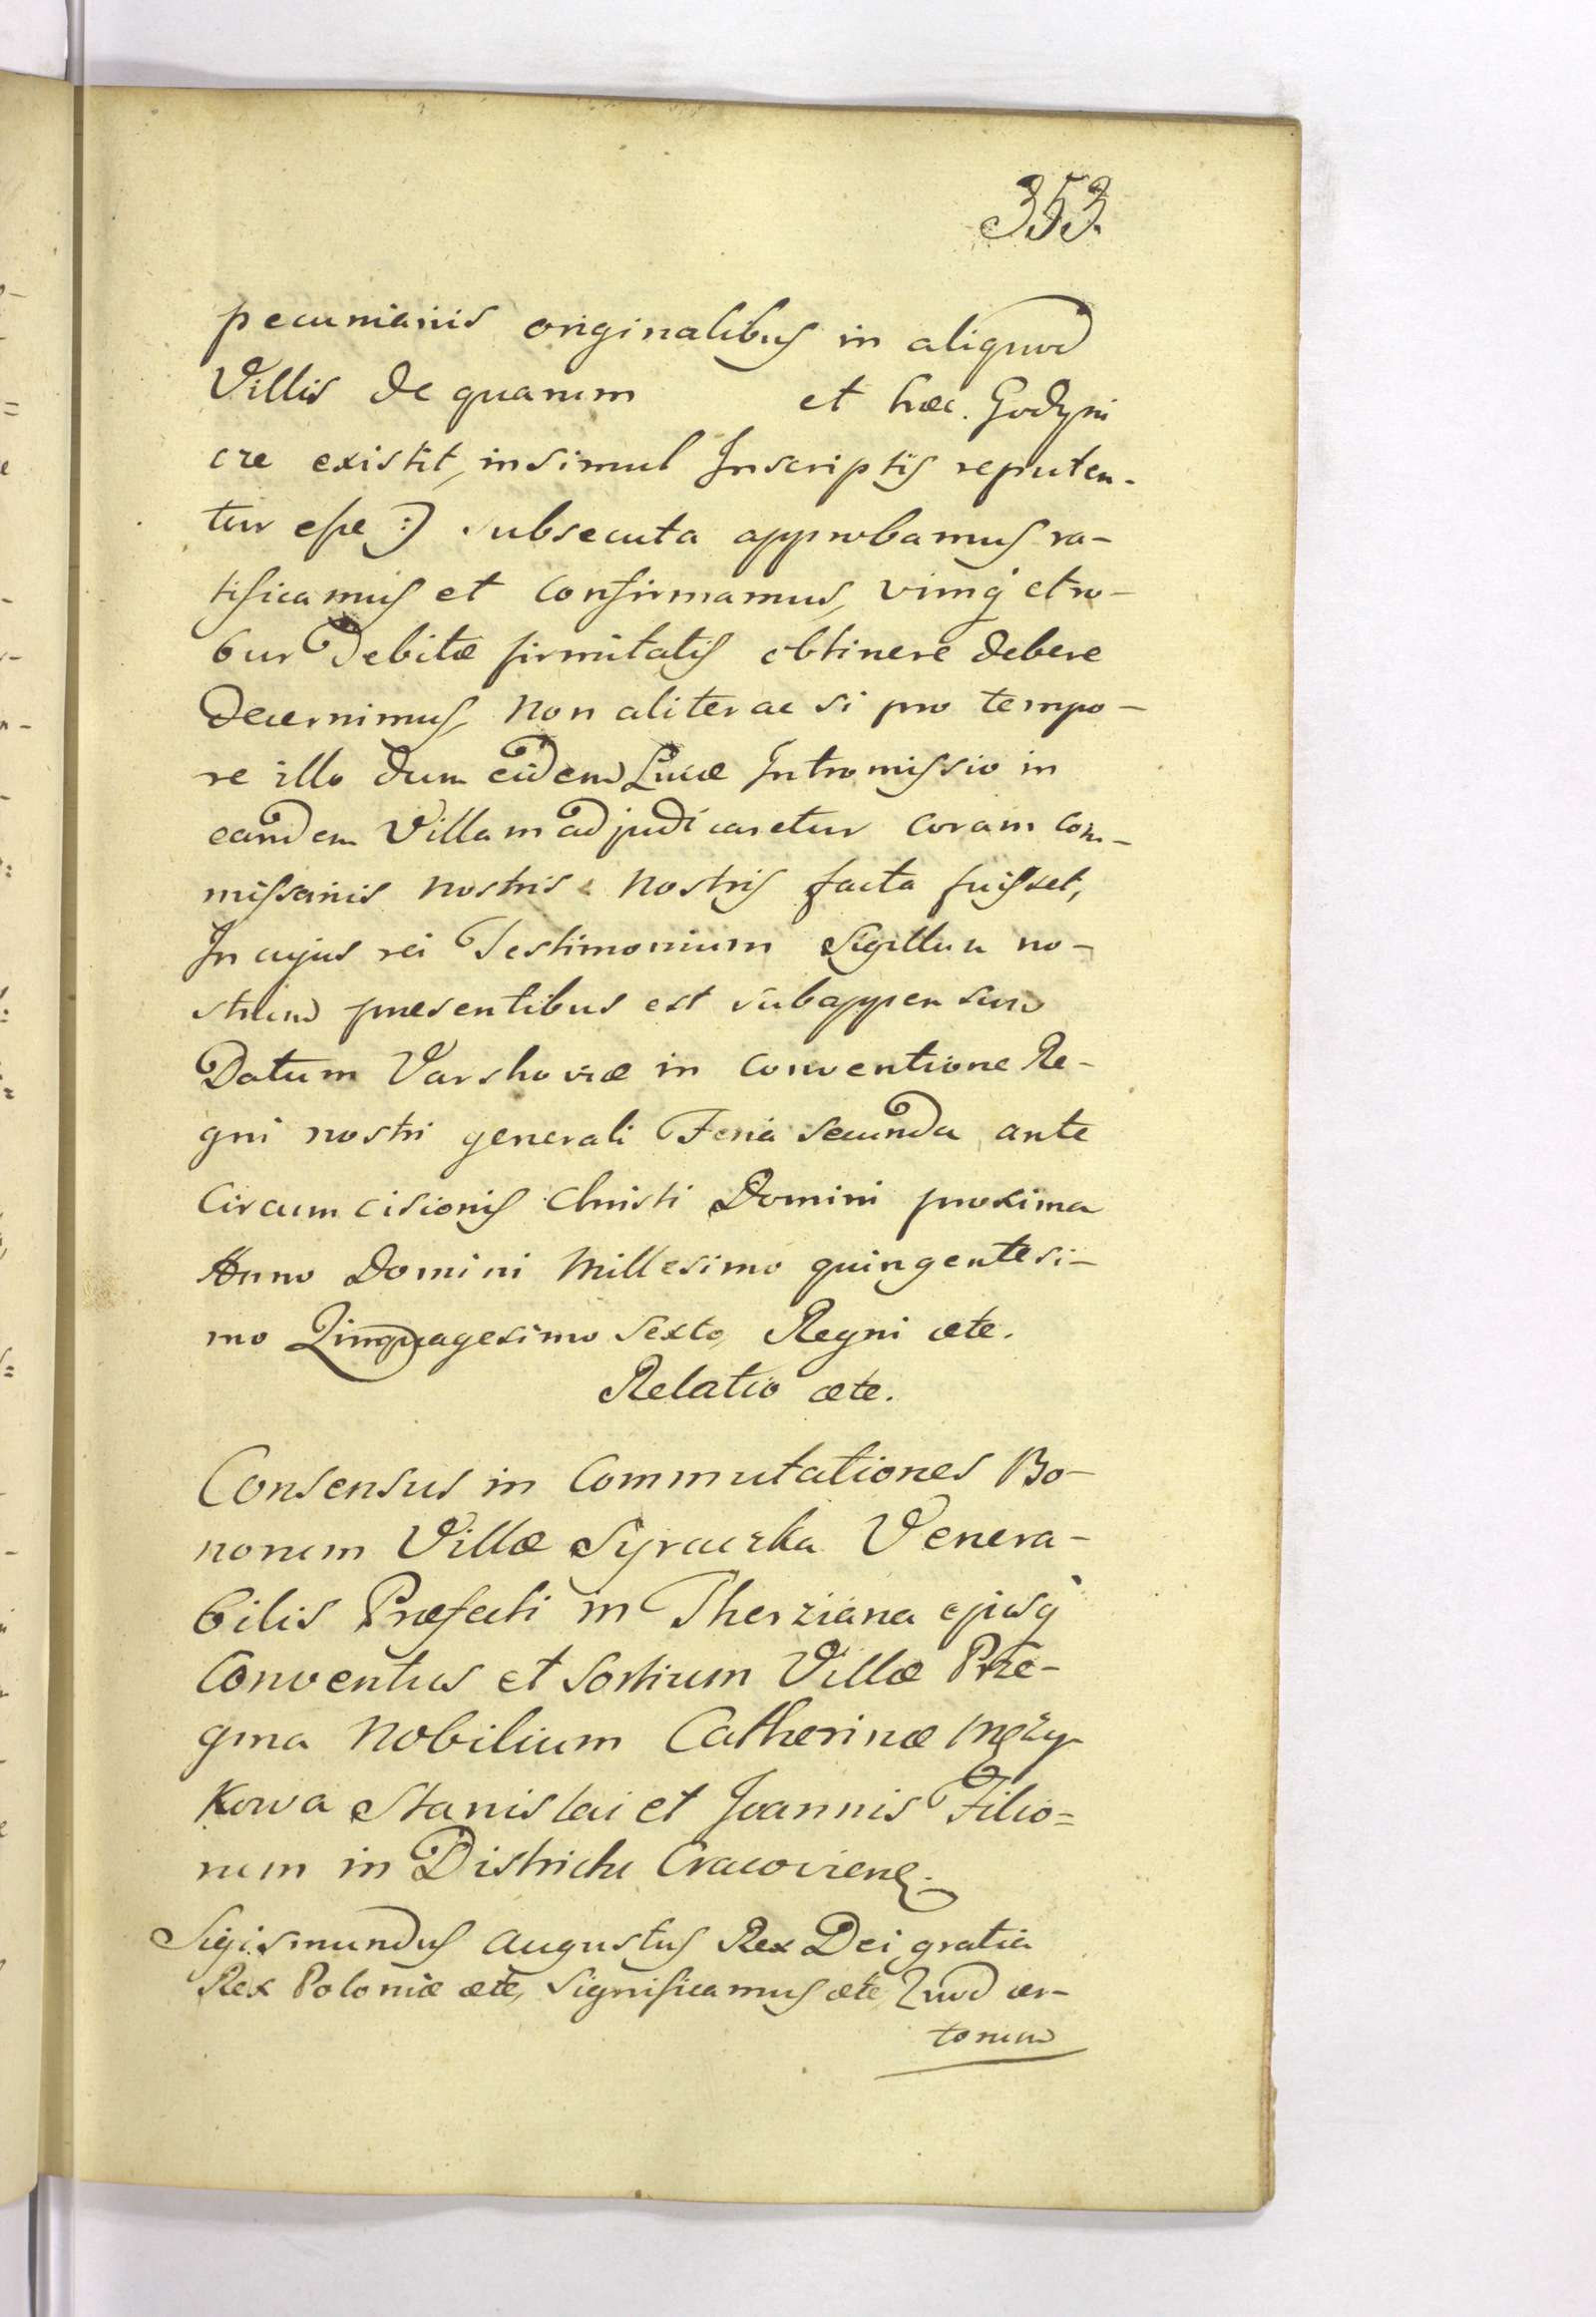 353.
pecuniariis originalibus in aliquod
Villis de quarum et haec. Godyni
cze existit, insimul Inscriptis reputen-
tur esse :) subsecuta approbamus ra-
tificamus et confirmamus, vimq́ et ro-
bur debitæ firmitatis obtinere debere
Decernimus, non aliter ac si pro tempo-
re illo dum eidem Lucæ Intromissio in
eandem Villam adjudicaretur coram com-
missariis nostris nostris facta fuisset,
In cujus rei Testimonium Sigillum no-
strum præsentibus est subappensum
Datum Varshoviæ in conventione Re-
gni nostri generali Feria secunda ante
Circumcisionis Christi Domini proxima
Anno Domini Millesimo quingentesi-
mo Qinquagesimo Sexto, Regni æte.
Relatio æte.
Consensus in Commutationes Bo-
norum Villæ Syraczka Venera-
bilis Præfecti in Therziana ejusq́
Conventus et Sortium Villæ Prze-
gina Nobilium Catherinæ Męzy-
kowa Stanislai et Joannis Filio=
rum in Districtu Cracoviens.
Sigismundus Augustus Rex Dei gratia
Rex Poloniæ æte, significamus æte Quod cer-
torum